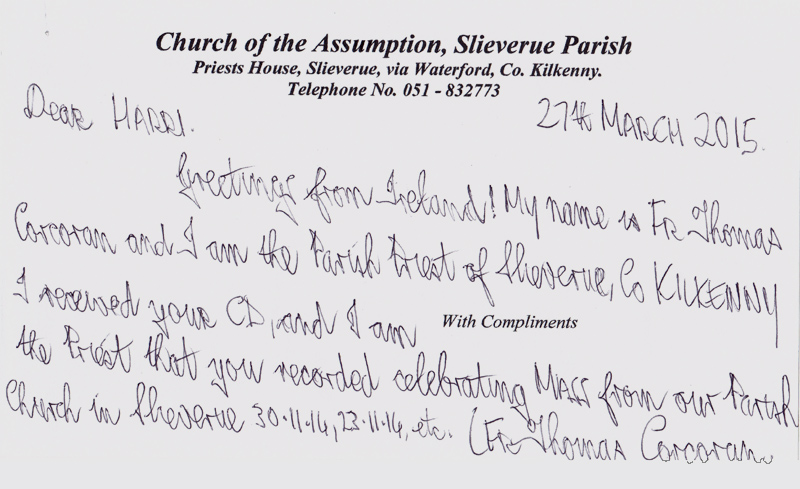 Church of the Assumption, Slieverue Parish
Priests House, Slieverue, via Waterford, Co. Kilkenny.
Telephone No. 051 - 832773
Dear HARRI.
27th MARCH 2015.
Greetings from Ireland! My name is Fr. Thomas
Corcoran and I am the Parish Priest of Slieverue, Co KILKENNY
I received your CD, and I am
With Compliments
the Priest that you recorded celebrating MASS from our Parish
Church in Slieverue 30.11.14, 23.11.14, etc. (Fr. Thomas Corcoran.